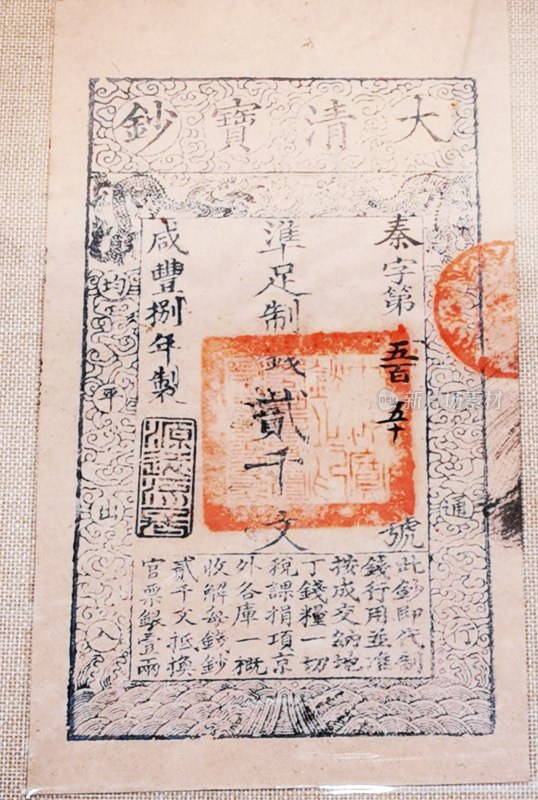 大清寶鈔
秦字第五百五十號
準足制錢貳千文
咸豐捌年製
通行
均平出入
此鈔即代制
錢行用並准
按成交納地
丁錢糧一切
稅課捐項京
外各庫一概
收解每錢鈔
貳千文抵換
官票銀壹兩
新片场素材